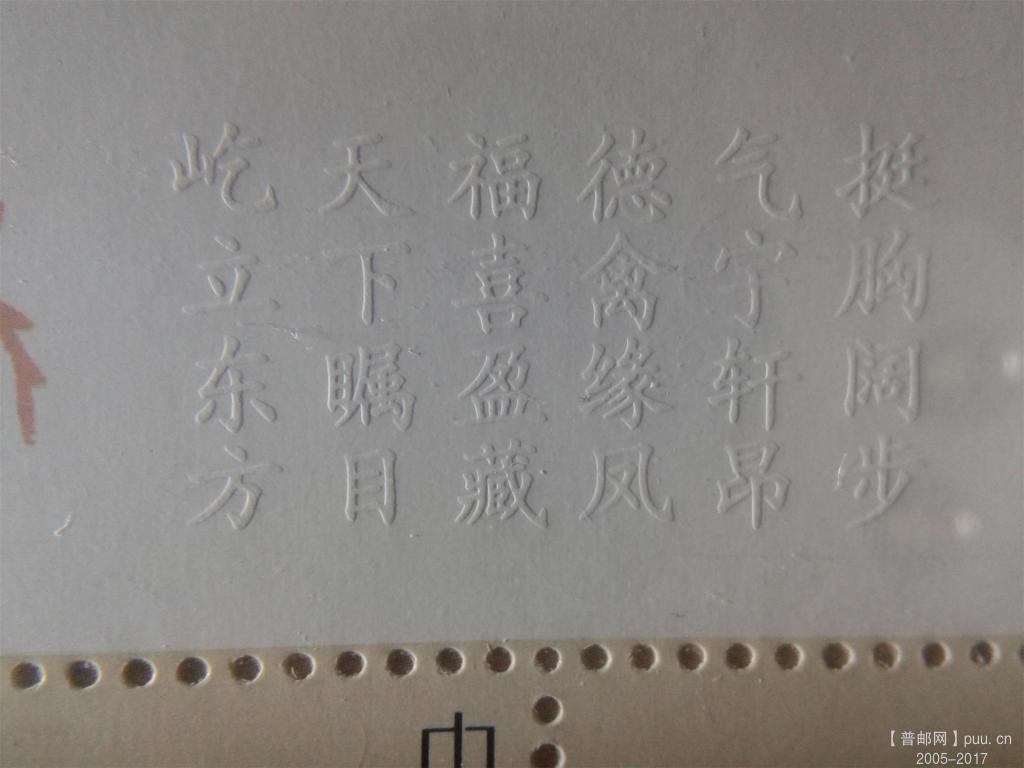 挺胸阔步
气宇轩昂
德禽缘凤
福喜盈藏
天下瞩目
屹立东方
中
【普邮网】puu.cn
2005-2017